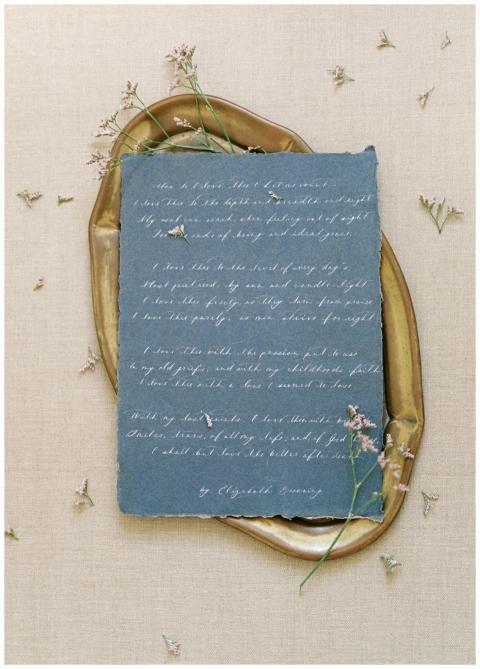 How do I love thee? Let me count
I love thee to the depth and breadth and height
My soul can reach, when feeling out of sight
For ends of being and ideal grace.
I love thee to the level of every day's
Most quiet need, by sun and candle-light
I love thee freely, as they turn from praise
I love thee purely, as men strive for right
I love thee with the passion put to use
In my old griefs, and with my childhoods faith
I love thee with a love I seemed to lose
With my lost saints. I love thee with
Smiles, tears, of all my life; and, if God
I shall but love thee better after death
by Elizabeth Browning